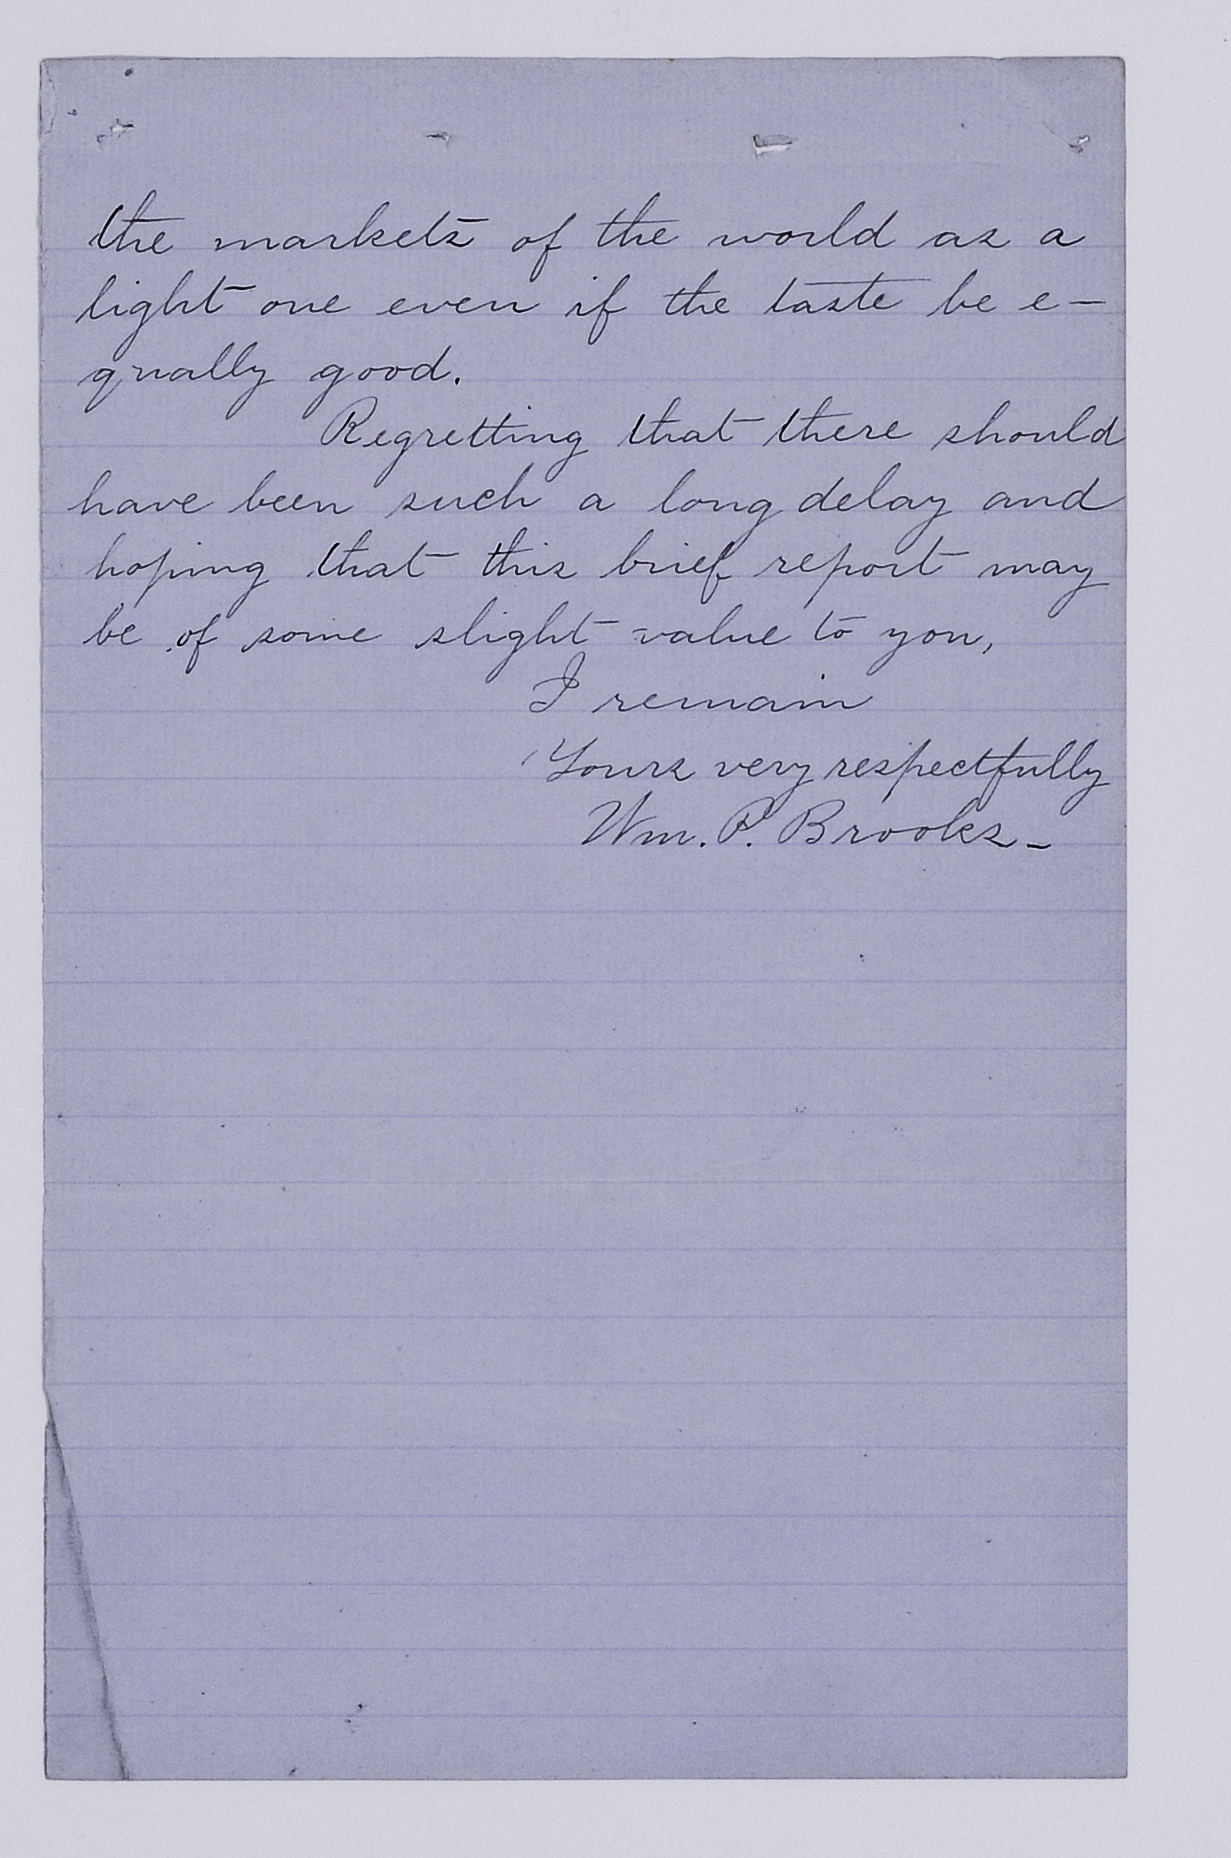 the markets of the world as a
light one even if the taste be e-
qually good.
Regretting that there should
have been such a long delay and
hoping that this brief report may
be of some slight value to you,
I remain
Yours very respectfully
Wm. P. Brooks_